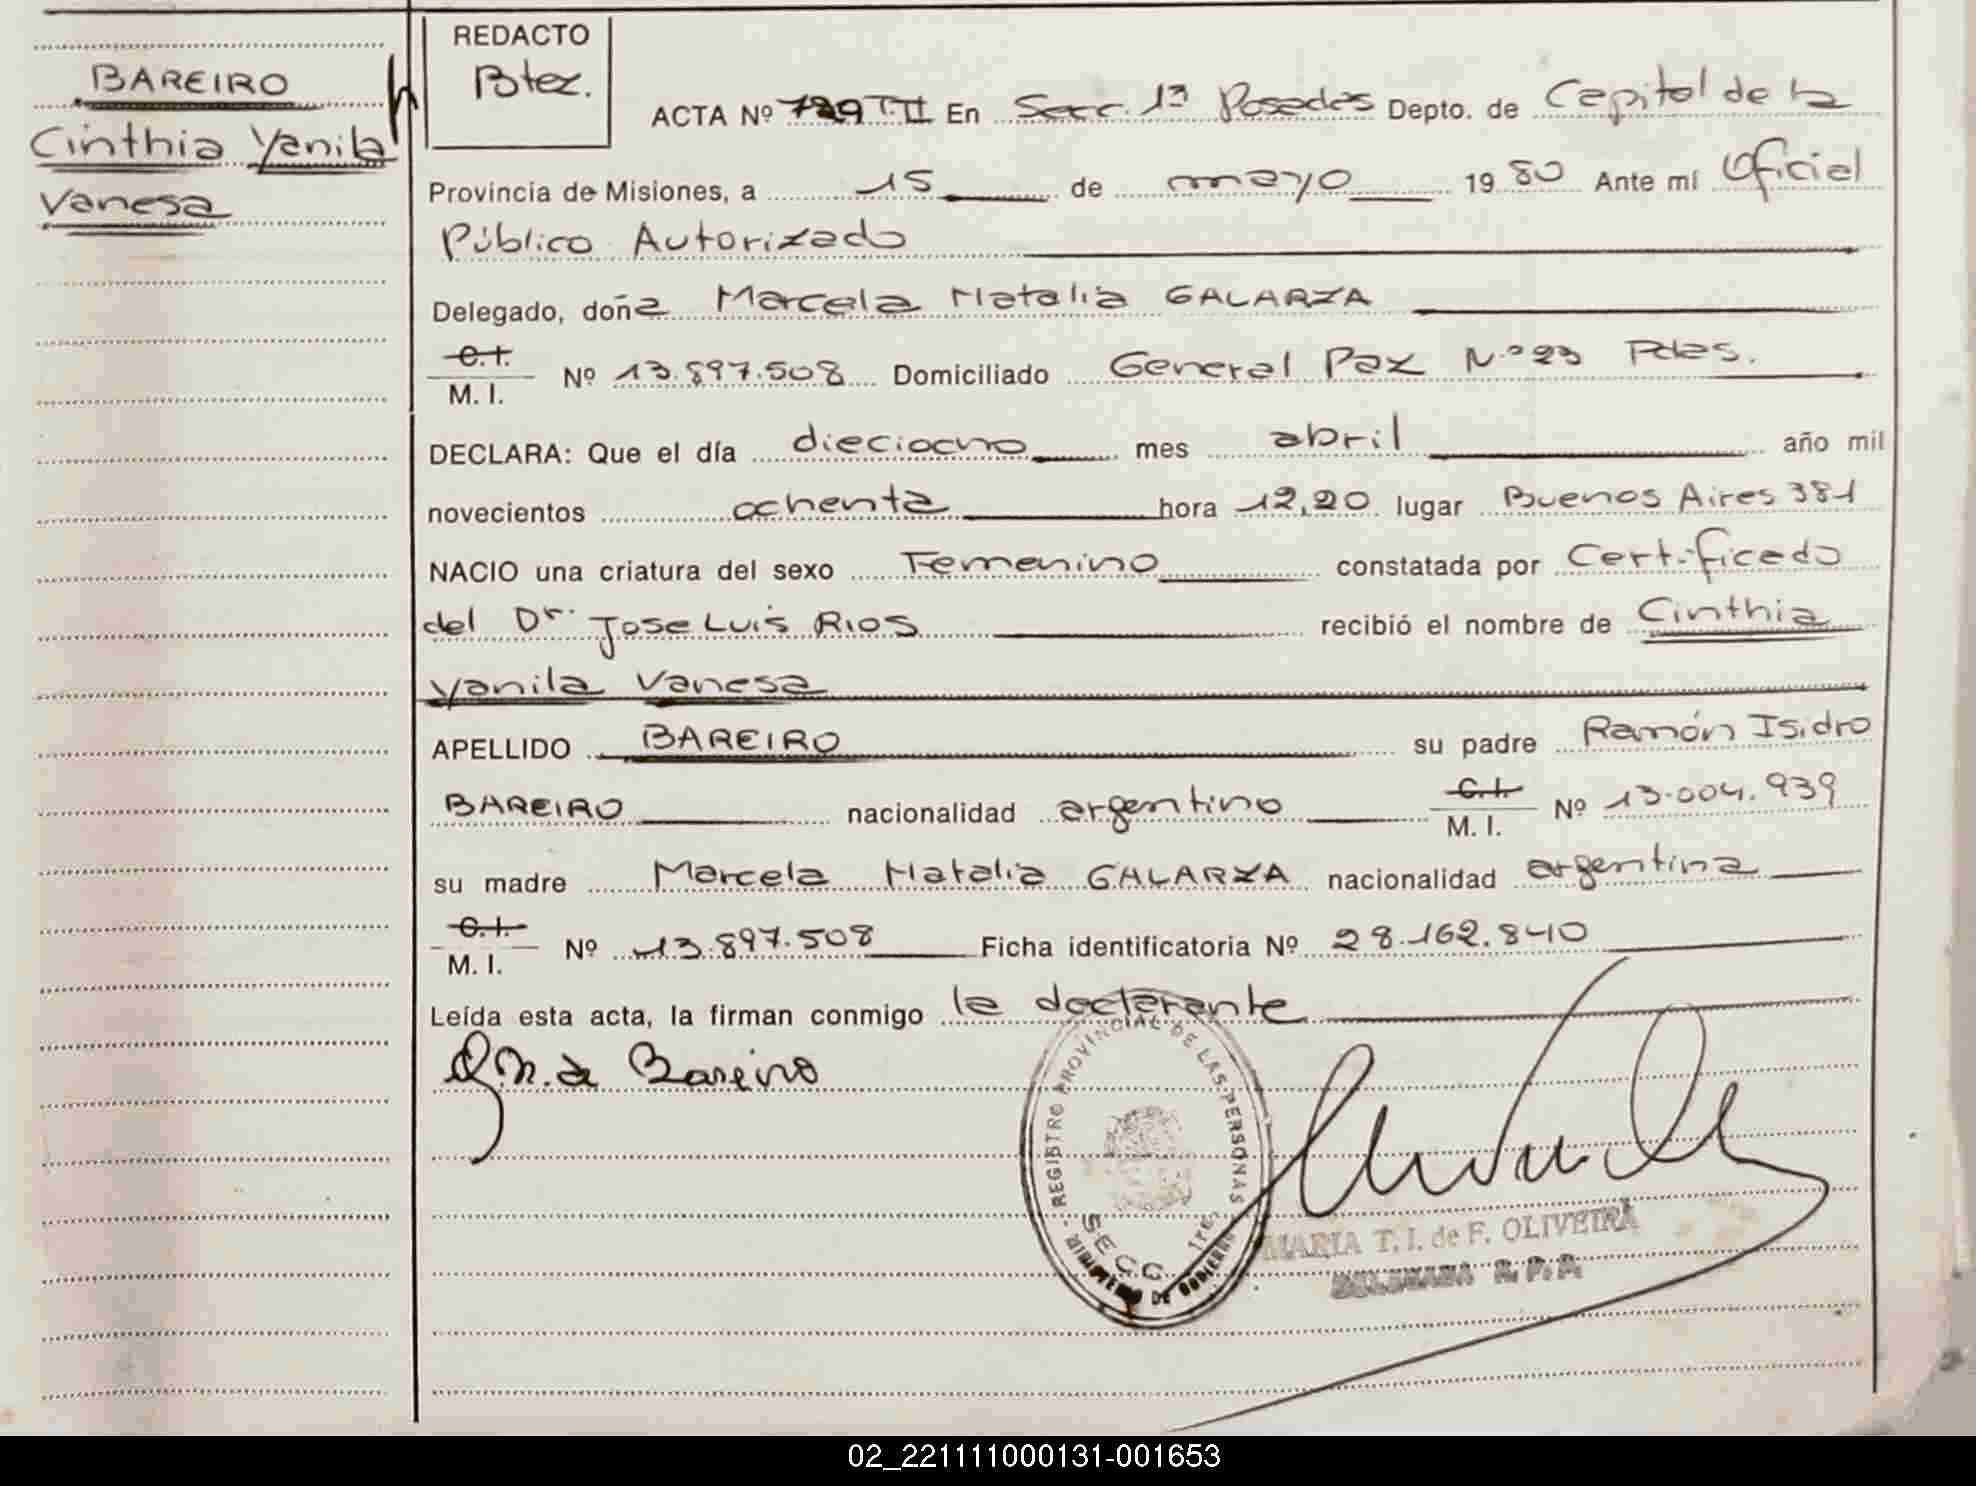 BAREIRO
Cinthia Yanila
Vanesa
REDACTO
Btez.
ACTA Nº 729 T. II En Secc. 1ª Posadas Depto. de Capital de la
Provincia de Misiones, a 15 de mayo 1980 Ante mí Oficial
Público Autorizado
Delegado, doña Marcela Natalia GALARZA
C.I.
M. I. Nº 13.897.508 Domiciliado General Paz Nº 23 Pdas.
DECLARA: Que el día dieciocho mes abril año mil
novecientos ochenta hora 12,20 lugar Buenos Aires 381
NACIO una criatura del sexo Femenino constatada por Certificado
del Dr. Jose Luis RIOS recibió el nombre de Cinthia
Yanila Vanesa
APELLIDO BAREIRO su padre Ramón Isidro
BAREIRO nacionalidad argentino C.I. M. I. Nº 13.004.939
su madre Marcela Natalia GALARZA nacionalidad argentina
C.I.
M. I. Nº 13.897.508 Ficha identificatoria Nº 28.162.840
Leída esta acta, la firman conmigo la declarante
G. M. de Bareiro
REGISTRO PROVINCIAL DE LAS PERSONAS
SECC. 1ra.
MINISTERIO DE GOBIERNO
MARIA T. I. de F. OLIVEIRA
DELEGADA R. P. P.
02_221111000131-001653